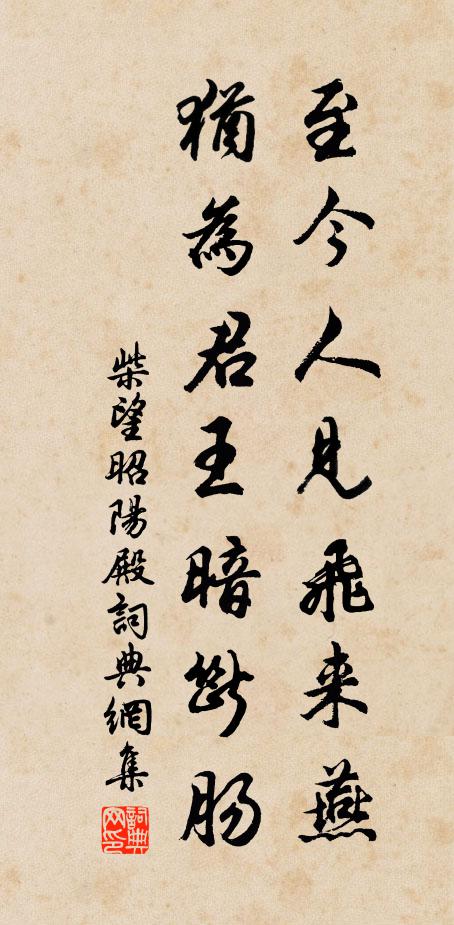 至今人見飛来燕
猶為君王暗斷腸
柴望昭陽殿詞典網集
詞典
网印